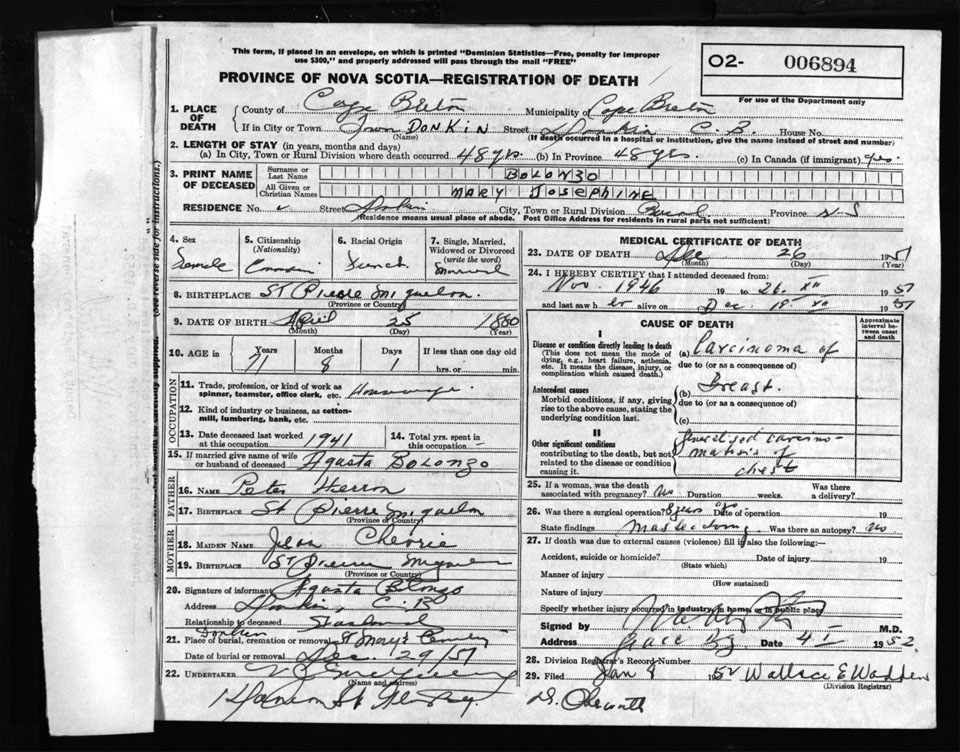 This form, if placed in an envelope, on which is printed "Dominion Statistics—Free, penalty for improper
use $300," and properly addressed will pass through the mail "FREE"
PROVINCE OF NOVA SCOTIA—REGISTRATION OF DEATH
O2- 006894
For use of the Department only
1. PLACE OF DEATH
County of Cape Breton Municipality Cape Breton
If in City or Town Town DONKIN Street Donkin C. B. House No.
(Name) (If death occurred in a hospital or institution, give the name instead of street and number)
2. LENGTH OF STAY (in years, months and days)
(a) In City, Town or Rural Division where death occurred 48 yrs. (b) In Province 48 yrs. (c) In Canada (if immigrant) yes.
3. PRINT NAME OF DECEASED
Surname or Last Name BOLONZO
All Given or Christian Names MARY JOSEPHINE
RESIDENCE No. Street Donkin City, Town or Rural Division Province N-S
(Residence means usual place of abode. Post Office Address for residents in rural parts not sufficient)
(See reverse side for instructions.)
4. Sex 5. Citizenship (Nationality) 6. Racial Origin 7. Single, Married, Widowed or Divorced (write the word)
Female Canadian French Married
8. BIRTHPLACE St Pierre Miquelon.
(Province or Country)
9. DATE OF BIRTH April 25 1880
(Month) (Day) (Year)
10. AGE in Years Months Days If less than one day old
71 8 hrs. or min.
OCCUPATION
11. Trade, profession, or kind of work as spinner, teamster, office clerk, etc. Housewife
12. Kind of industry or business, as cotton-mill, lumbering, bank, etc.
13. Date deceased last worked at this occupation 1941 14. Total yrs. spent in this occupation —
15. If married give name of wife or husband of deceased Agusta Bolonzo
FATHER
16. NAME Peter Herron
17. BIRTHPLACE St Pierre Miquelon
(Province or Country)
MOTHER
18. MAIDEN NAME Jean
19. BIRTHPLACE St Pierre Miquelon
(Province or Country)
20. Signature of informant Agusta Bolonzo
Address Donkin, C. B
Relationship to deceased Husband
Donkin
21. Place of burial, cremation or removal St Mary's Cemetery
Date of burial or removal Dec. 29/51
22. UNDERTAKER
(Name and address)
MEDICAL CERTIFICATE OF DEATH
23. DATE OF DEATH Dec 26 1951
(Month) (Day) (Year)
24. I HEREBY CERTIFY that I attended deceased from:
Nov. 1946 19 to 26. XII 1951
and last saw her alive on Dec. 1951
CAUSE OF DEATH
Approximate interval between onset and death
I
Disease or condition directly leading to death
(This does not mean the mode of dying, e.g., heart failure, asthenia, etc. It means the disease, injury, or complication which caused death.)
(a) Carcinoma of
due to (or as a consequence of)
Antecedent causes
Morbid conditions, if any, giving rise to the above cause, stating the underlying condition last.
(b) Breast.
due to (or as a consequence of)
(c)
II
Other significant conditions
contributing to the death, but not related to the disease or condition causing it.
Generalised carcino-
matosis of
chest
25. If a woman, was the death associated with pregnancy? No Duration weeks. Was there a delivery?
26. Was there a surgical operation? Date of operation 19
State findings Mastectomy Was there an autopsy? No
27. If death was due to external causes (violence) fill in also the following:—
Accident, suicide or homicide? Date of injury 19
(State which)
Manner of injury
(How sustained)
Nature of injury
Specify whether injury occurred in industry, in home, or in public place
Signed by M.D.
Address Glace Bay Date 4. I 1952.
28. Division Registrar's Record Number
29. Filed Jan 8 1952 Wallace E Wadden
(Division Registrar)